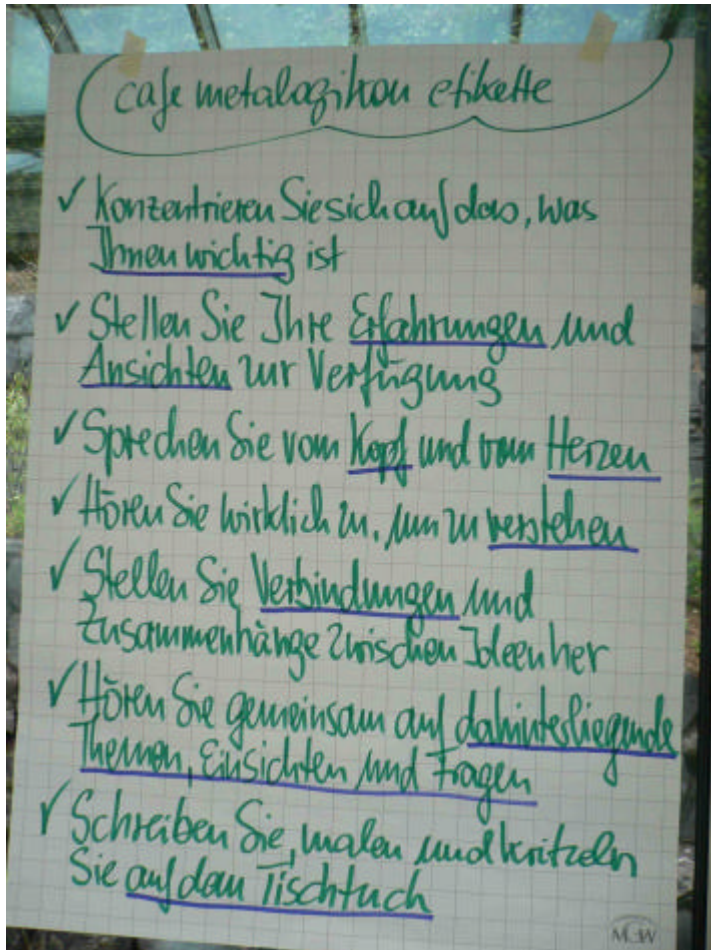 cafe metalogikon etikette
✓ Konzentrieren Sie sich auf das, was
Ihnen wichtig ist
✓ Stellen Sie Ihre Erfahrungen und
Ansichten zur Verfügung
✓ Sprechen Sie vom Kopf und vom Herzen
✓ Hören Sie wirklich zu, um zu verstehen
✓ Stellen Sie Verbindungen und
Zusammenhänge zwischen Ideen her
✓ Hören Sie gemeinsam auf dahinterliegende
Themen, Einsichten und Fragen
✓ Schreiben Sie, malen und kritzeln
Sie auf dem Tischtuch